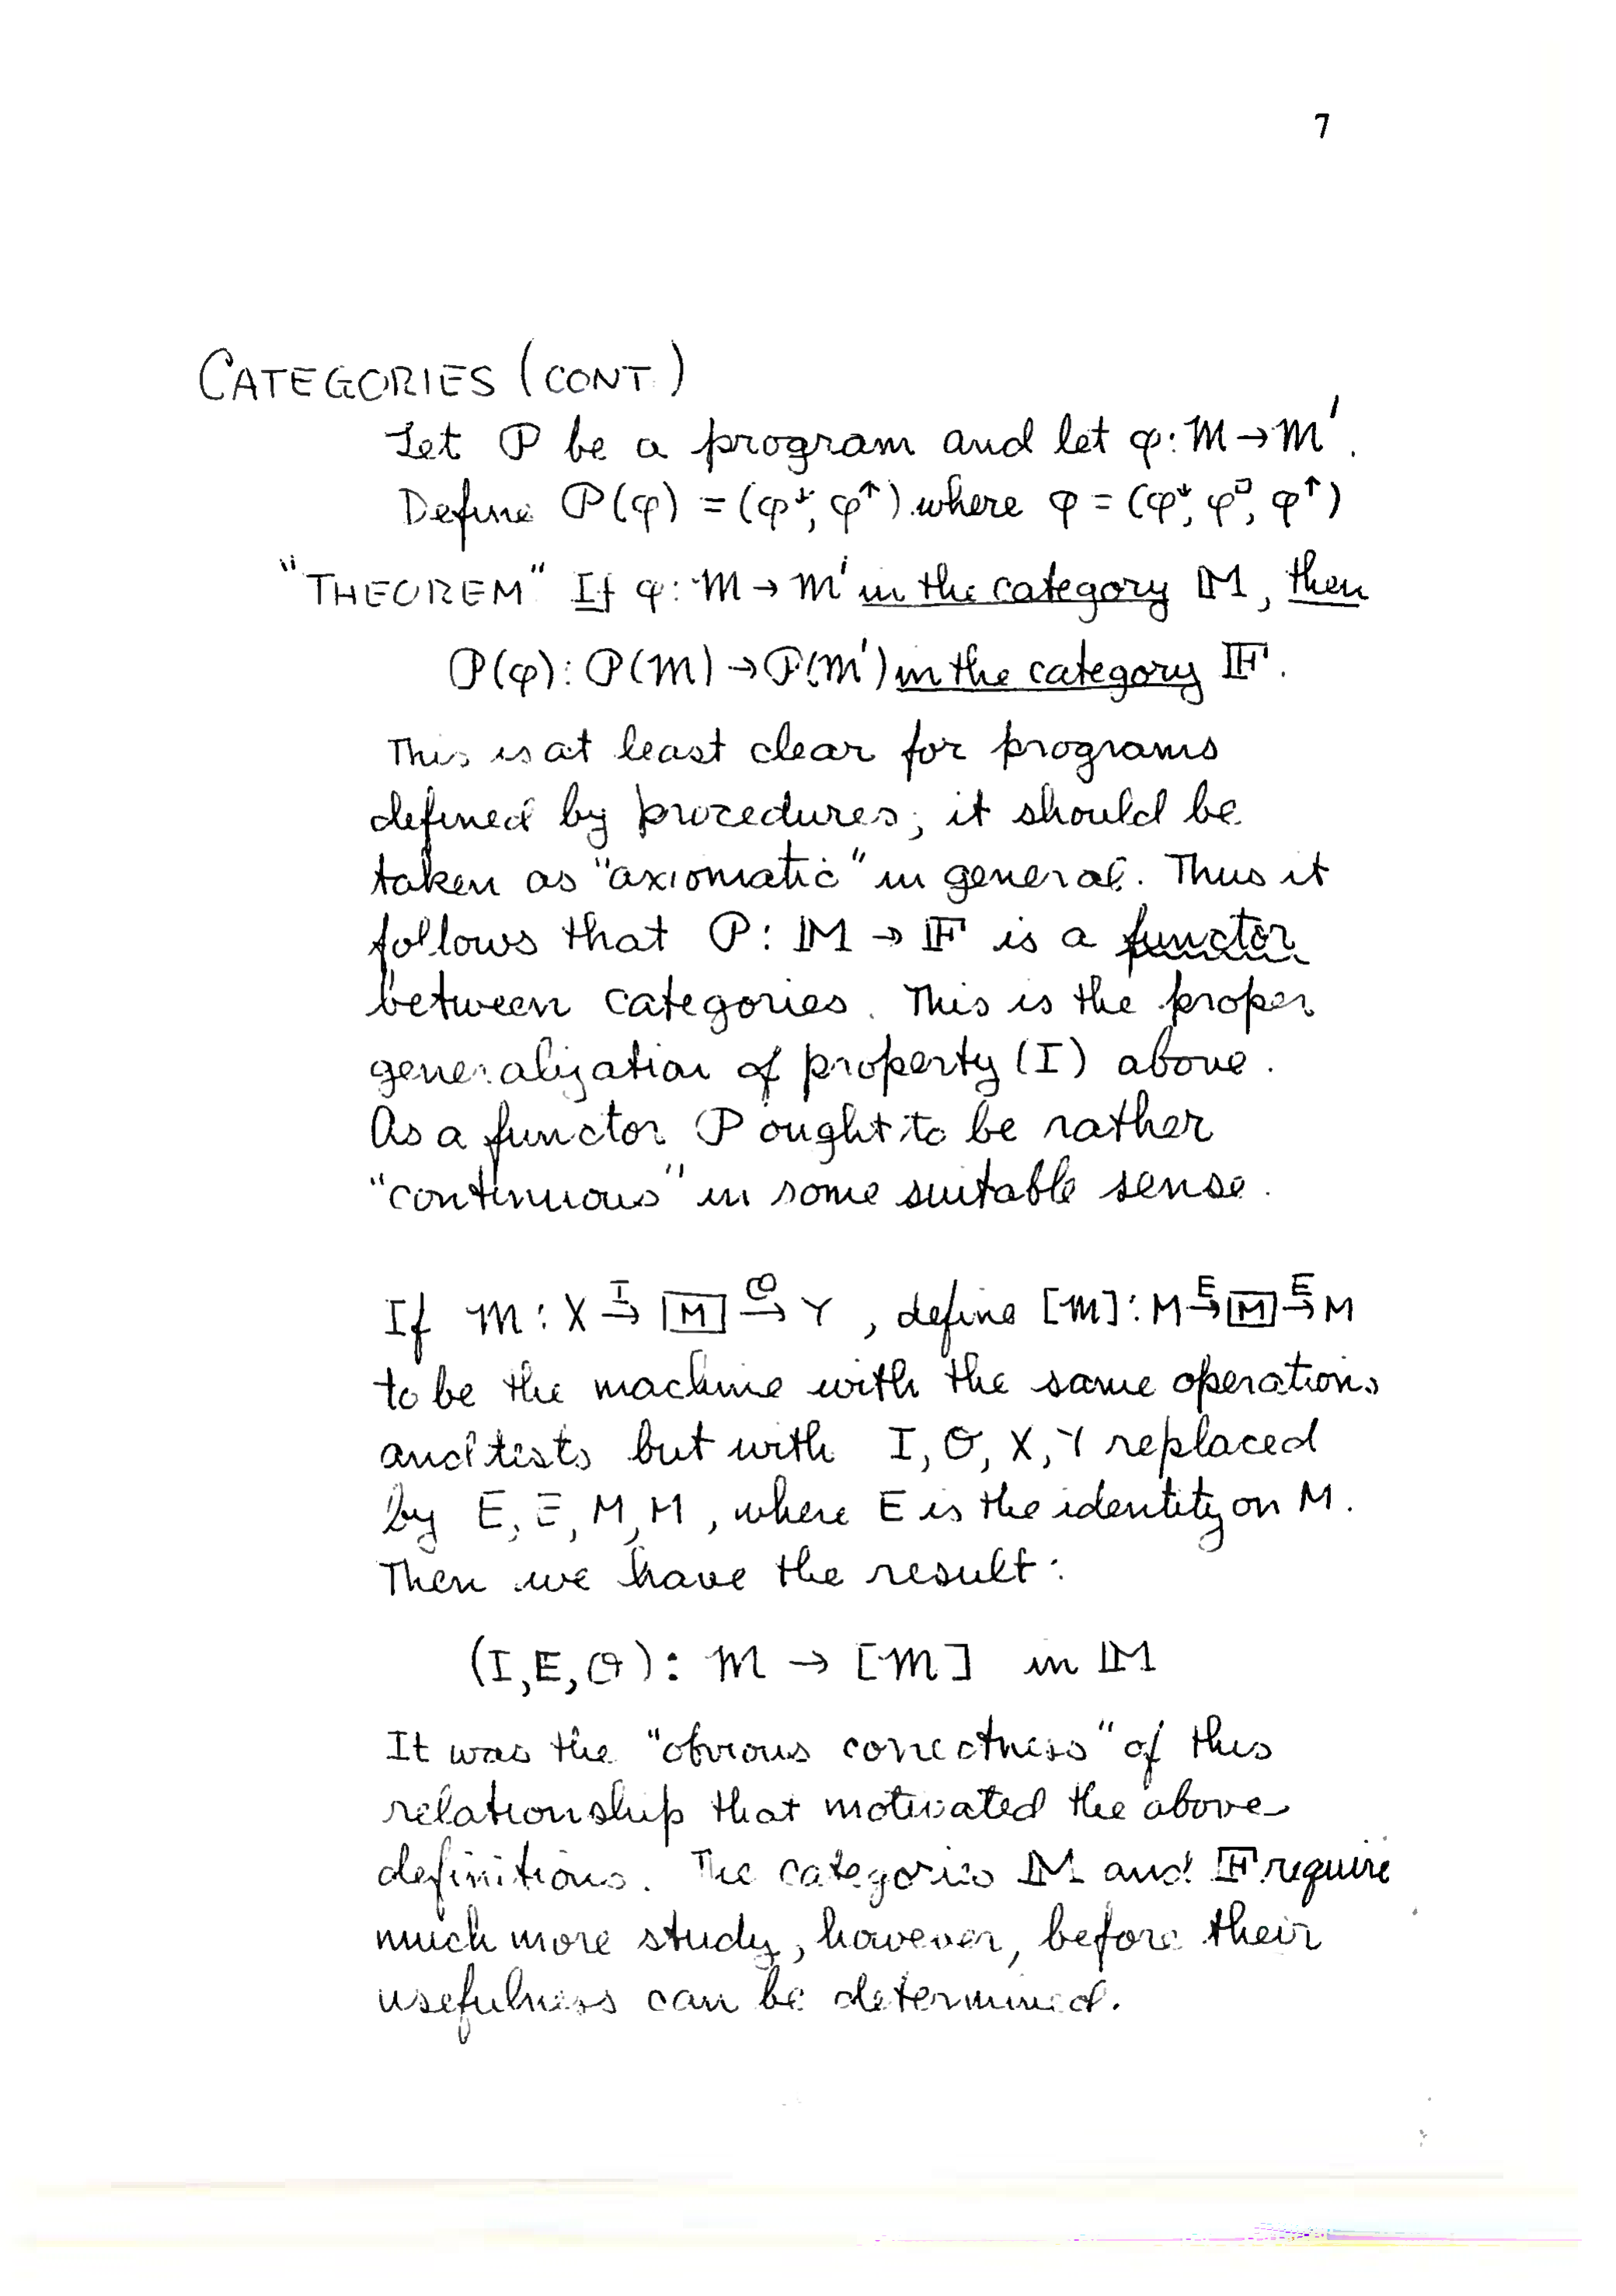 7
CATEGORIES (CONT.)
Let 𝒫 be a program and let φ: 𝓜 → 𝓜′.
Define 𝒫(φ) = (φ↓, φ↑) where φ = (φ↓, φ□, φ↑)
"THEOREM" If φ: 𝓜 → 𝓜′ in the category 𝕄, then
𝒫(φ): 𝒫(𝓜) → 𝒫(𝓜′) in the category 𝔽.
This is at least clear for programs
defined by procedures; it should be
taken as "axiomatic" in general. Thus it
follows that 𝒫: 𝕄 → 𝔽 is a functor
between categories. This is the proper
generalization of property (I) above.
As a functor 𝒫 ought to be rather
"continuous" in some suitable sense.
If 𝓜: X →ᴵ [M] →ᴼ Y, define [𝓜]: M →ᴱ [M] →ᴱ M
to be the machine with the same operations
and tests but with I, O, X, Y replaced
by E, E, M, M, where E is the identity on M.
Then we have the result:
(I, E, O): 𝓜 → [𝓜] in 𝕄
It was the "obvious correctness" of this
relationship that motivated the above
definitions. The categories 𝕄 and 𝔽 require
much more study, however, before their
usefulness can be determined.